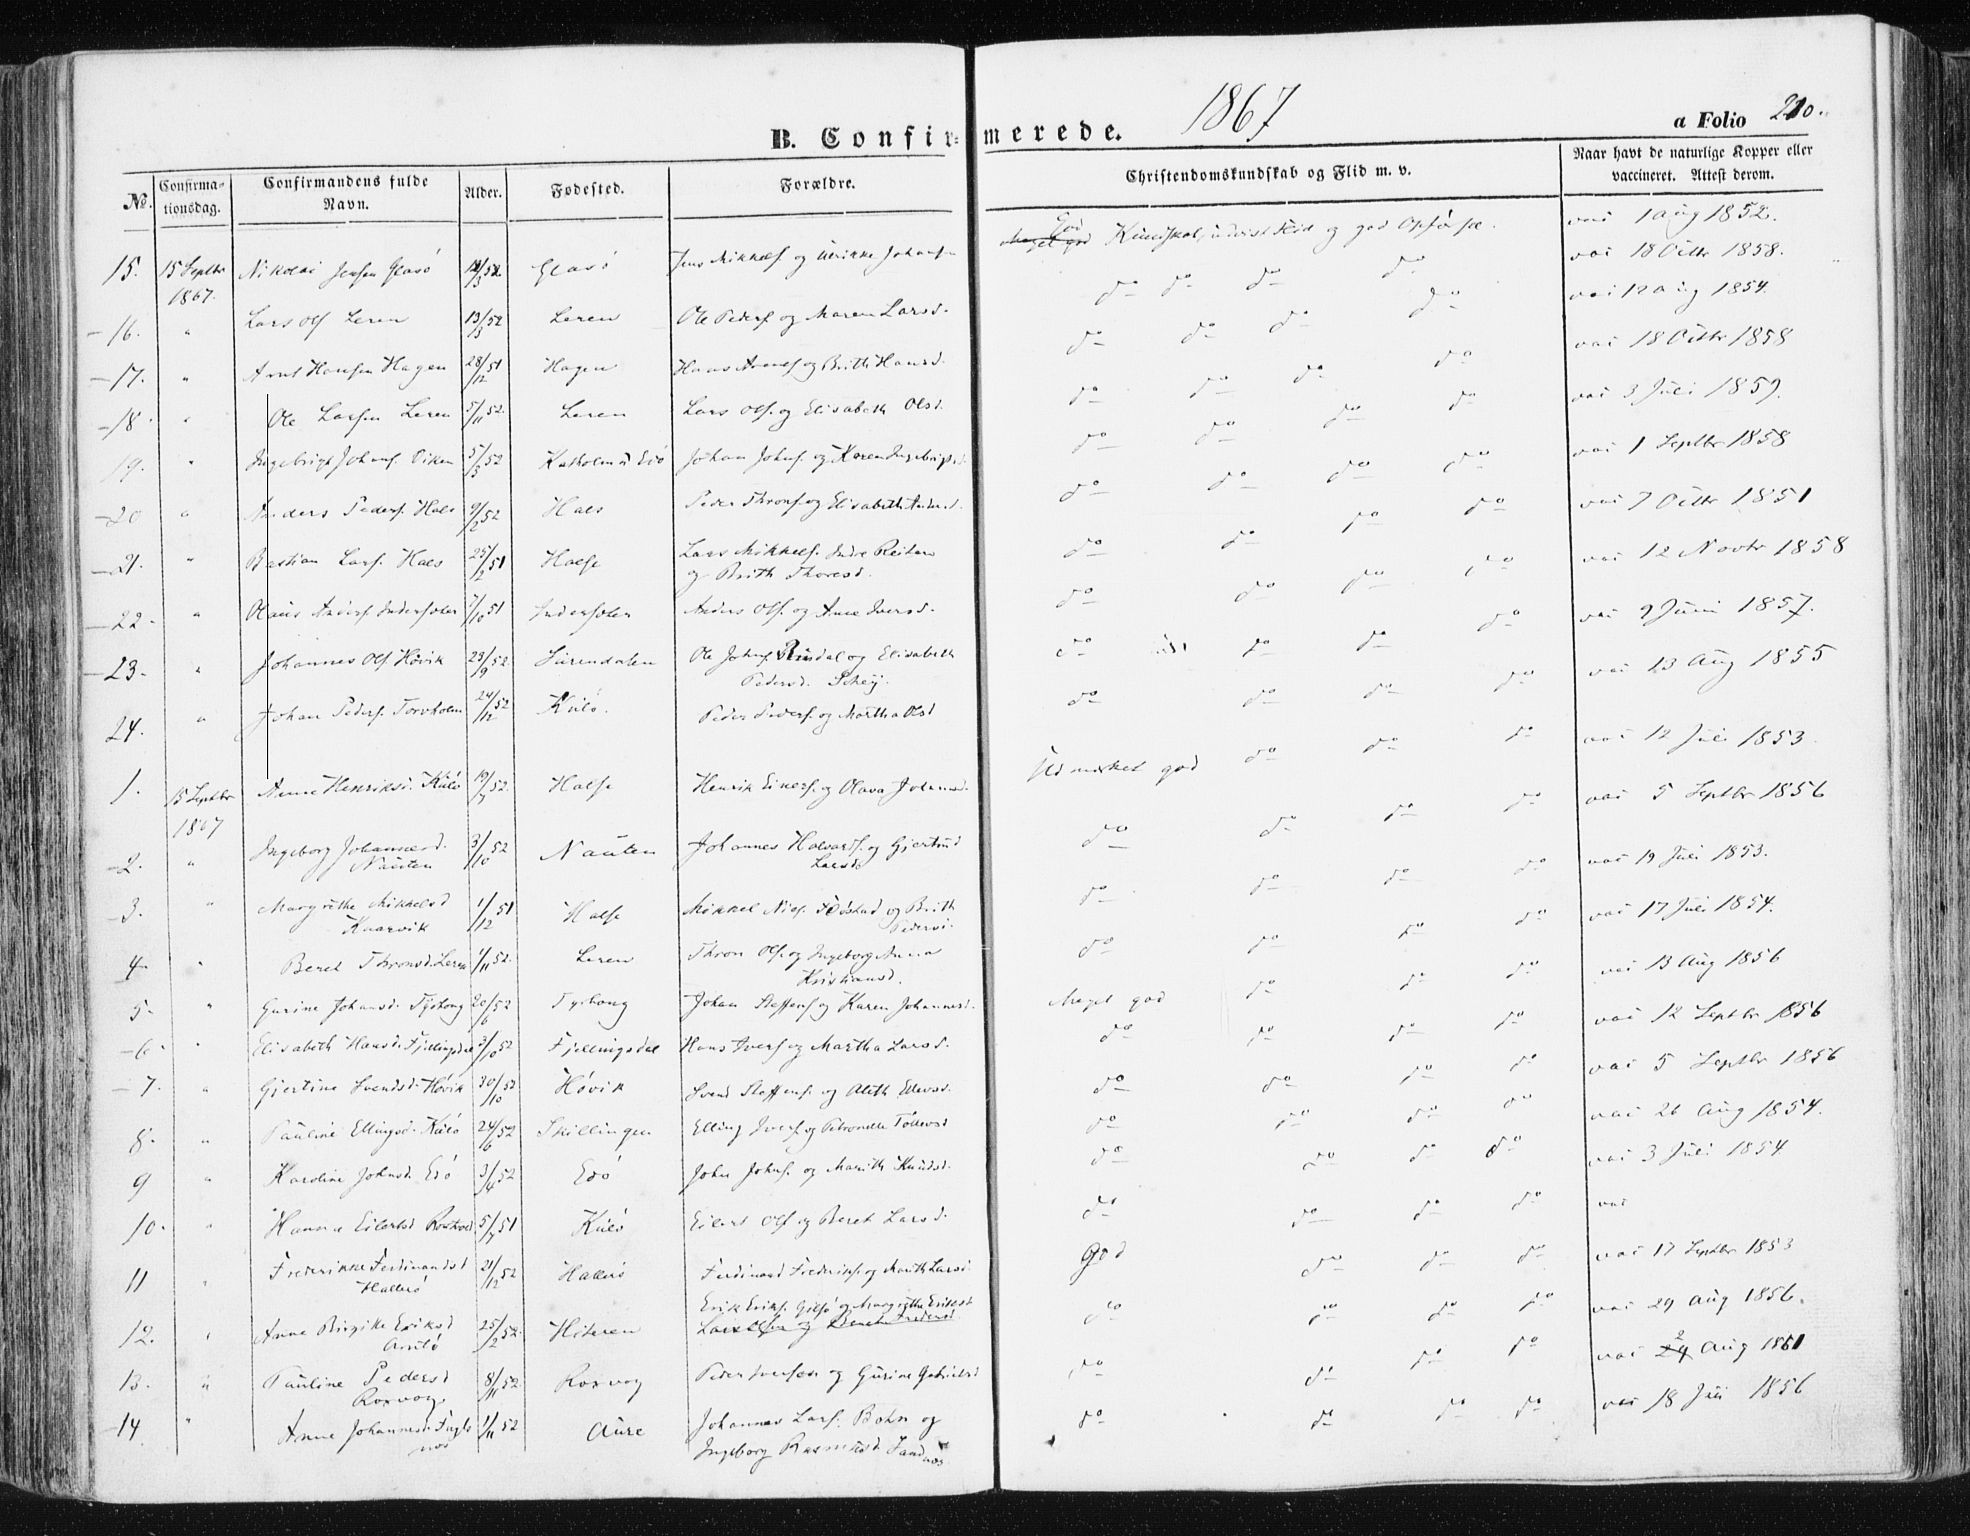 B. Confirmerede. 1867 a Folio 210.
№. Confirmationsdag. Confirmandens fulde Navn. Alder. Fødested. Forældre. Christendomskundskab og Flid m. v. Naar havt de naturlige Kopper eller vaccineret. Attest derom.
15. 15 Septbr 1867. Nikolai Jensen Glasö Glasö Jens Mikkels. og Ulrikke Johans God Kundskab, udvist Flid og god Opförsel. vac 1 Aug 1852.
16. " Lars Ols Leren 13/3 52 Leren Ole Peders. og Maren Larsd. do do do do vac 18 Octbr 1858.
17. " Arnt Hansen Hagen 28/12 51 Hagen Hans Arnts og Brith Hansd. do do do do vac 12 Aug 1854.
18. " Ole Larsen Leren 5/11 52. Leren Lars Ols. og Elisabeth Olsd. do do do do vac 18 Octbr 1858
19. " Ingebrigt Johns. Viken 5/3 52 Kalholmen Edö Johan Johns. og Karen Ingebrigtsd. do do do do vac 3 Juli 1859.
20 " Anders Peders. Hals 9/2 52 Hals Peder Throns. og Elisabeth Andersd. do do do do vac 1 Septbr 1858
21. " Bastian Lars. Hals 25/2 51 Halse Lars Mikkels. Indre Reiten og Brith Thoresd. do do do do vac 7 Octbr 1851
22. " Olaus Anders. Indersolen 7/10 51 Indersolen Anders Ols. og Anne Iversd. do do do do vac 12 Novbr 1858
23. " Johannes Ols. Hövik 23/9 52. Surendalen Ole Johns. Rindal og Elisabeth Pedersd. Schey. do do do do vac 9 Juni 1857.
24. " Johan Peders. Torvholm 24/12 52 Kulö. Peder Peders. og Martha Olsd do do do do vac 13 Aug 1855
1. 15 Septbr 1867 Anne Henriksd. Kulö 19/7 52. Halse Henrik Einers. og Olava Johnsd. Udmærket god do do do vac 12 Juli 1853.
2. " Ingeborg Johannesd. Nauten 3/10 52 Nauten Johannes Halvards. og Gjertrud Larsd. do do do do vac 5 Septbr 1856
3. " Margrethe Mikkelsd Kaarvik 1/12 51 Halse Mikkel Niels. Flöstad og Brith Pedersd. do do do do vac 19 Juli 1853.
4. " Beret Thronsd. Leren 1/11 52. Leren Thron Ols. og Ingeborg Anna Kristiansd. do do do do vac 17 Juli 1854.
5. " Gurine Johansd. 20/6 52 Johan Steffens. og Karen Johannesd. Meget god do do do vac 13 Aug 1856
6. " Elisabeth Hansd. Fjellingsdal 3/10 52 Fjellingsdal Hans Ivers og Martha Larsd. do do do do vac 12 Septbr 1856
7. " Gjertine Svendsd. Hövik 30/10 52 Hövik Svend Steffens. og Aleth Ellevsd. do do do do vac 5 Septbr 1856
8. " Pauline Ellingsd. Kulö 24/6 52 Skillingen Elling Ivers. og Petronelle Tollevsd do do do do vac 26 Aug 1854.
9 " Karoline Johnsd. Edö 3/4 52 Edö John Johns. og Marith Knudsd. do do do do vac 3 Juli 1854
10. " Hanna Eilertsd 5/7 51 Kulö Eilert Ols og Beret Larsd. do do do do vac
11 " Frederikke Ferdinandsd Hallerö 21/12 52 Hallerö Ferdinand Frederiks. og Marith Larsd. God do do do vac 17 Septbr 1853
12. " Anne Birgitte Eriksd 25/2 52. Hiteren Erik Eriks. og Margrethe Eriksd do do do do vac 29 Aug 1856.
13. " Pauline Pedersd Roxvog 8/11 52. Roxvog Peder Iversen og Gurine Gabrielsd do do do do vac 2 Aug 1861
14 " Anne Johannesd. Fuglenes 1/11 52 Aure Johannes Lars. Bohn og Ingeborg Rasmusd Sandnes do do do do vac 18 Juli 1856